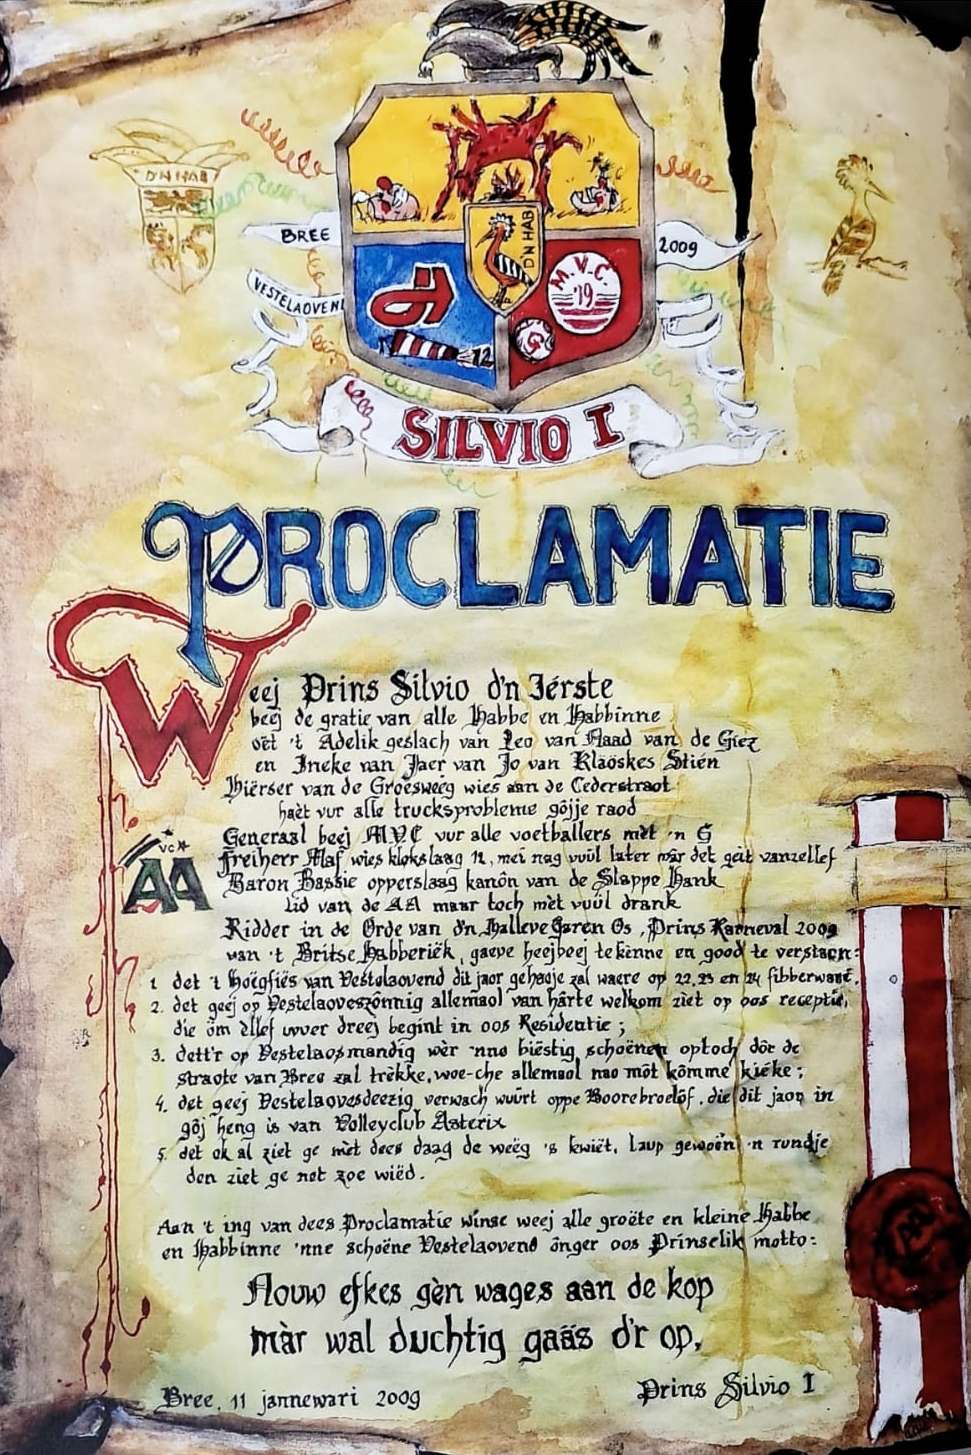 D'N HAB
BREE
2009
VESTELAOVEND
D'N HAB
M.V.C.
'19
G
12
SILVIO I
PROCLAMATIE
Weej Prins Silvio d'n Iérste
beej de gratie van alle Habbe en Habbinne
oët 't Adelik geslach van Leo van Naad van de Giez
en Ineke van Jaer van Jo van Klaöskes Stiën
Hiërser van de Groësweëg wies aan de Cederstraot
haèt vur alle trucksprobleme gôjje raod
Generaal beej MVC vur alle voetballers mèt 'n G
Freiherr Maf wies klokslaag 12, mei nag vuül later mâr det geit vanzellef
Baron Bassie opperslaag kanôn van de Slappe Hank
VC
AA
Lid van de AA maar toch mèt vuül drank
Ridder in de Orde van d'n Halleve Garen Os, Prins Karneval 2009
van 't Britse Habberiëk, gaeve heejbeej te kinne en good te verstaon:
1 det 't Hoëgfiës van Vestelaovend dit jaor gehaoje zal waere op 22, 23 en 24 fibberwarë,
2. det geej op Vestelaoveszönnig allemaol van hârte welkom ziet op oos receptie,
die öm èllef uver dreej begint in oos Residentie ;
3. dett'r op Vestelaosmandig wèr 'nne biëstig schoënen optoch dôr de
straote van Bree zal trèkke, woe-che allemaol nao môt kômme kiéke ;
4. det geej Vestelaovesdeezig verwach wuürt oppe Boorebroelôf, die dit jaor in
gôj heng is van Volleyclub Asterix
5. det ok al ziet ge mèt dees daag de weëg 's kwiët, laup gewoën 'n rundje
den ziet ge not zoe wiëd.
Aan 't ing van dees Proclamatie winse weej alle groëte en kleine Habbe
en Habbinne 'nne schoëne Vestelaovend ônger oos Prinselik motto:
Nouw efkes gèn wages aan de kop
màr wal duchtig gaàs d'r op.
Bree, 11 jannewari 2009
Prins Silvio I